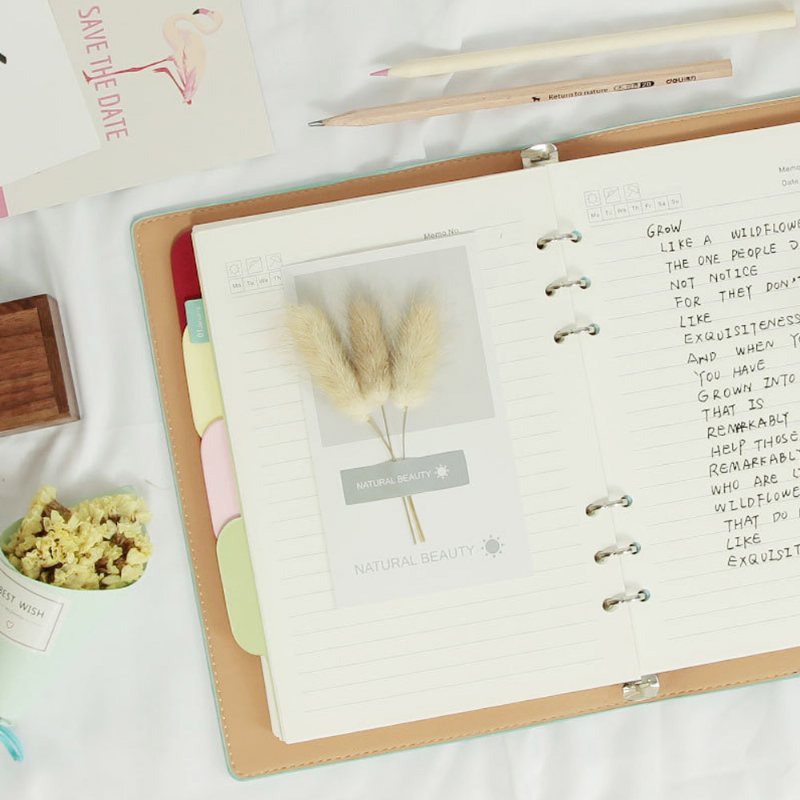 SAVE THE DATE
Return to nature 2B deli
Memo No.
Mo Tu We Th
NATURAL BEAUTY
NATURAL BEAUTY
BEST WISH
Memo
Date
Mo Tu We Th Fr Sa Su
GROW
LIKE A WILDFLOWE
THE ONE PEOPLE D
NOT NOTICE
FOR THEY DON'
LIKE
EXQUISITENESS
AND WHEN YO
YOU HAVE
GROWN INTO
THAT IS
REMARKABLY
HELP THOSE
REMARKABLY
WHO ARE
WILDFLOWE
THAT DO
LIKE
EXQUISIT